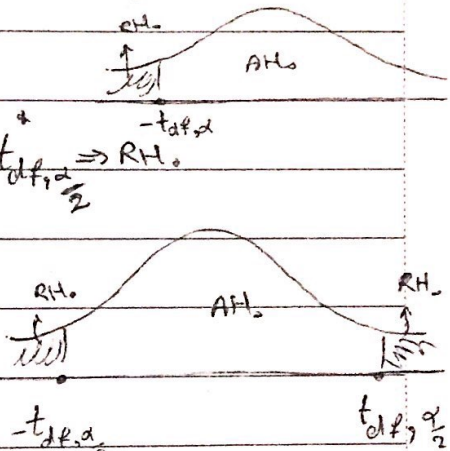 RH₀
AH₀
-t df,α
t df,α/2 ⇒ RH₀
RH₀ AH₀ RH₀
-t df,α t df,α/2